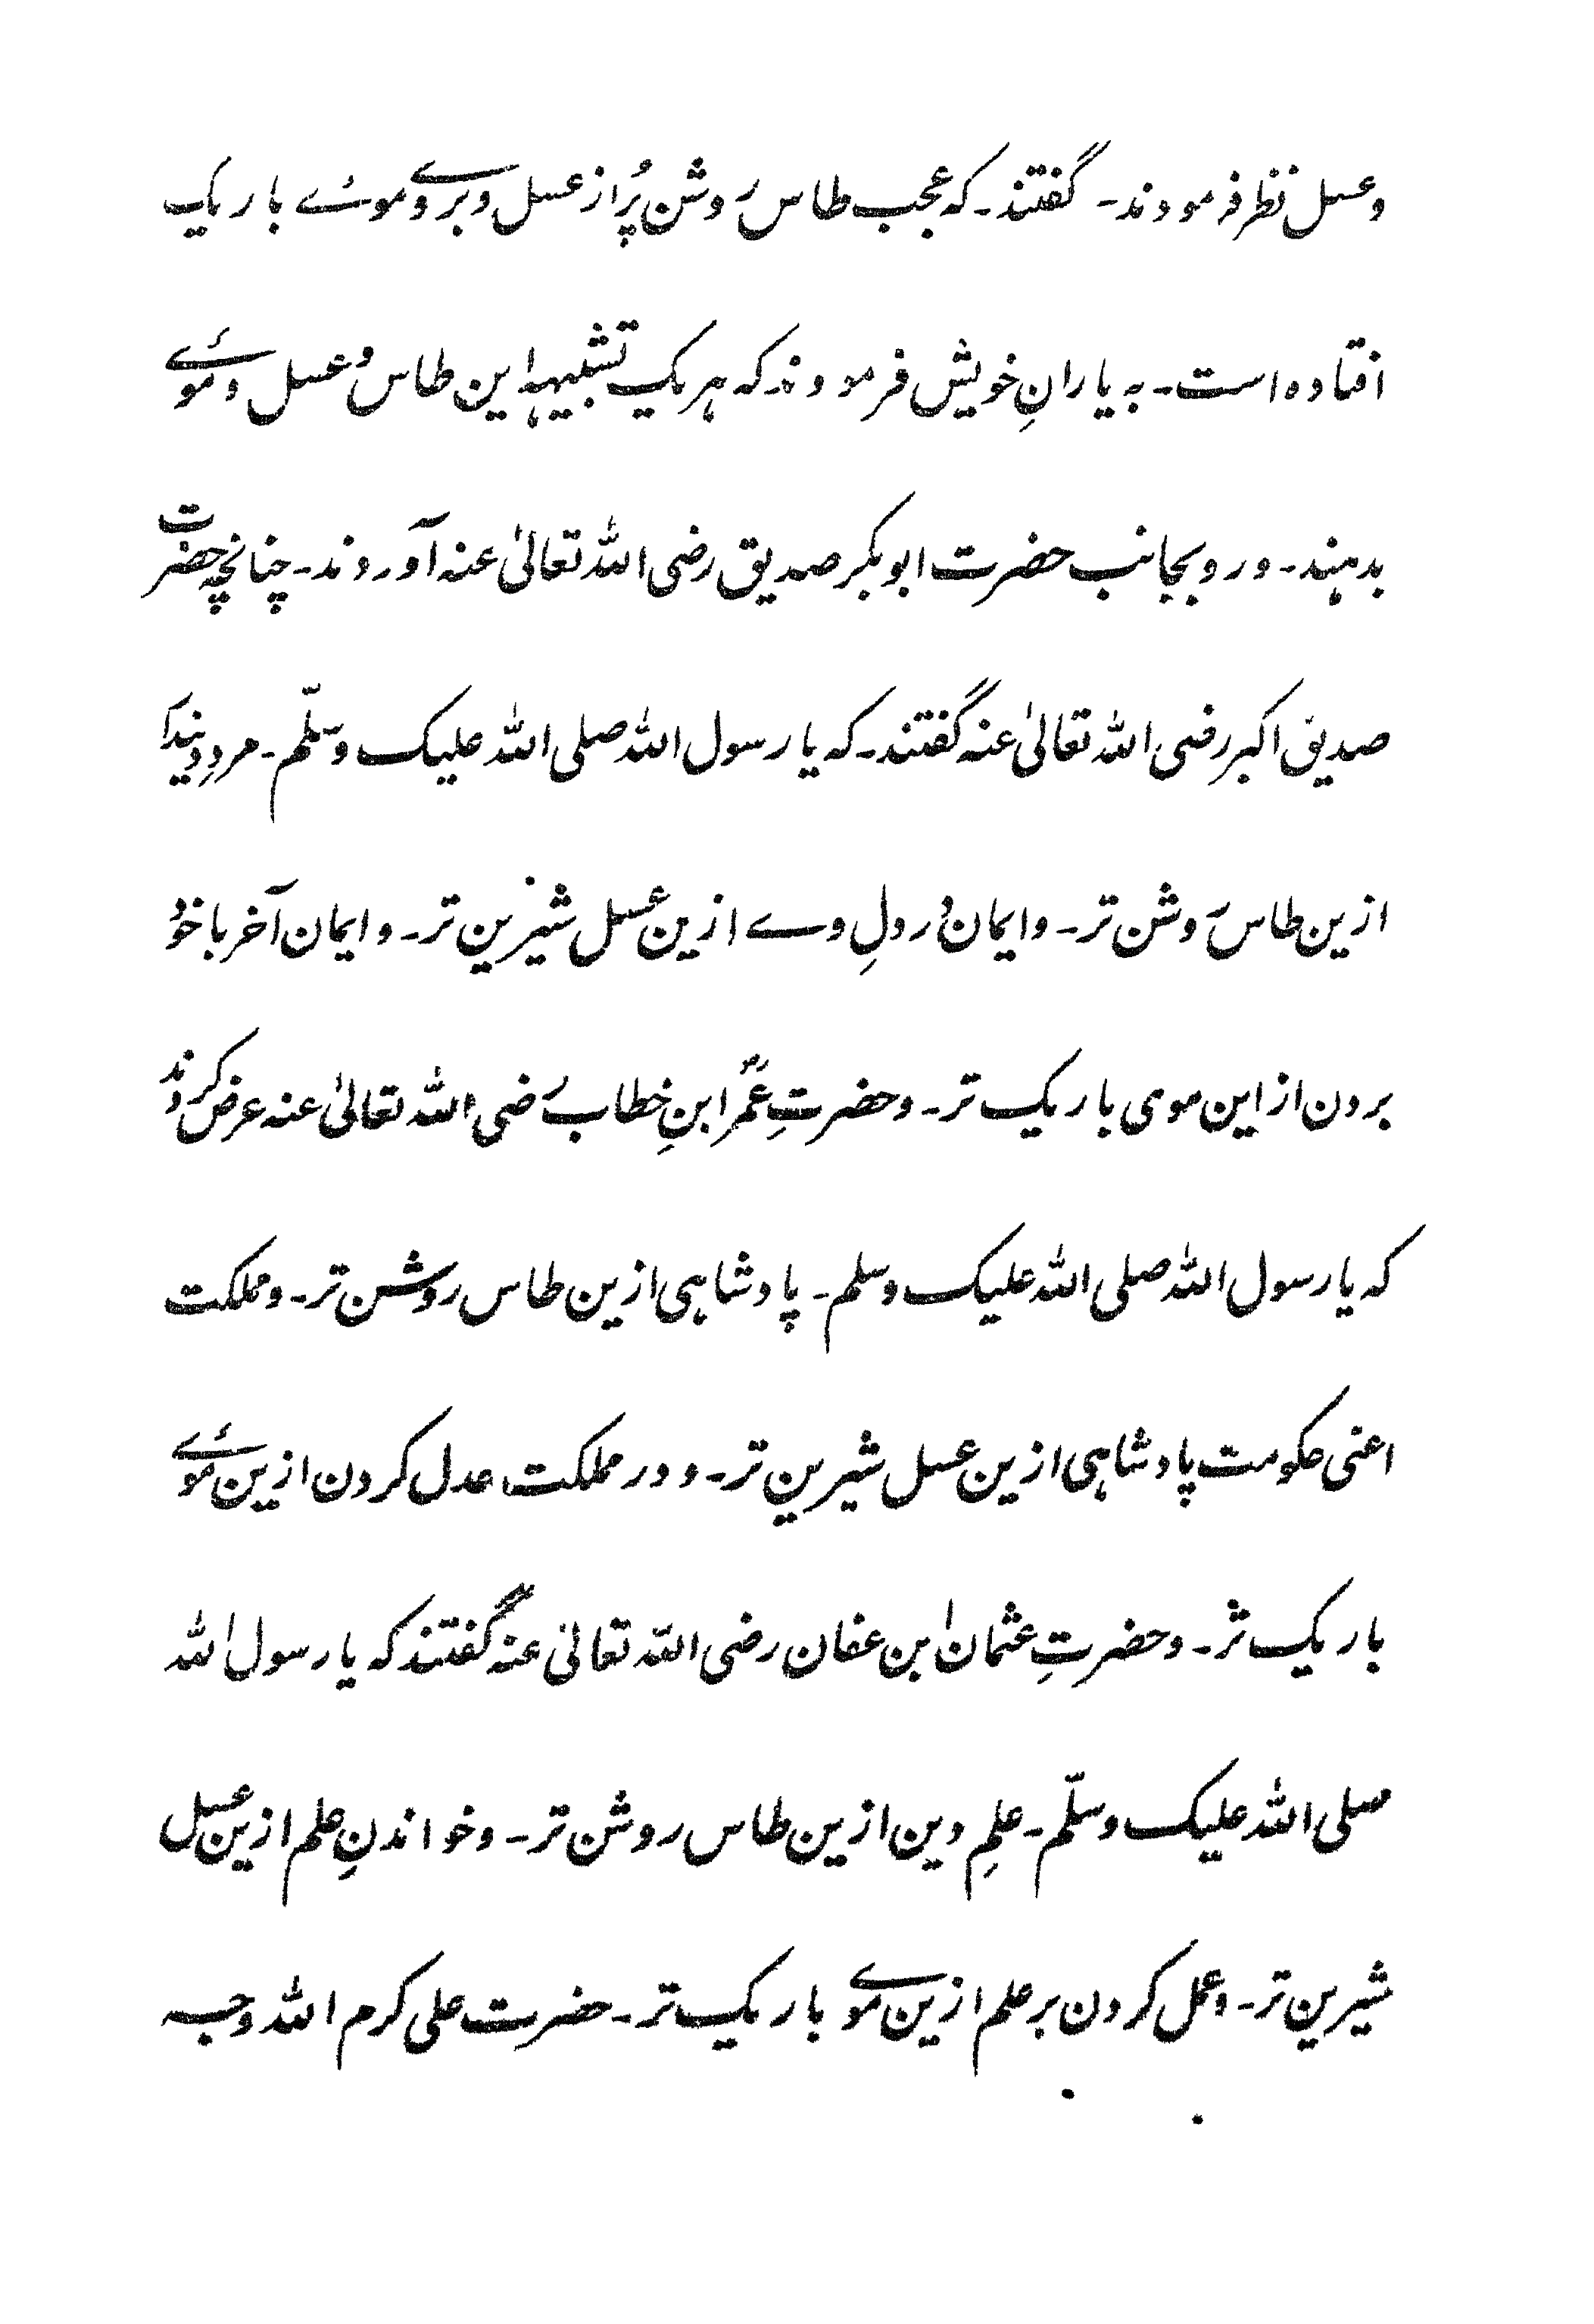 وعسل نظر فرمودند۔ گفتند۔ که عجب طاس روشن پُر از عسل و بروے وموئے باریک
افتاده است۔ به یارانِ خویش فرمودند که هر یک تشبیهه این طاس و عسل و موئے
بدهند۔ ورو بجانب حضرت ابوبکر صدیق رضی الله تعالیٰ عنه آوردند۔ چنانچه حضرت
صدیق اکبر رضی الله تعالیٰ عنه گفتند۔ که یا رسول الله صلی الله علیک وسلّم۔ مردِ دیندار
ازین طاس روشن تر۔ و ایمان در دلِ وے ازین عسل شیرین تر۔ و ایمان آخر باخود
بردن از این موی باریک تر۔ و حضرتِ عمرؓ ابنِ خطاب رضی الله تعالیٰ عنه عرض کردند
که یا رسول الله صلی الله علیک وسلم۔ پادشاهی ازین طاس روشن تر۔ و مملکت
اعنی حکومت پادشاهی ازین عسل شیرین تر۔ و در مملکت عدل کردن ازین موئے
باریک تر۔ و حضرتِ عثمان ابن عفان رضی الله تعالیٰ عنه گفتند که یا رسول الله
صلی الله علیک وسلّم۔ علمِ دین ازین طاس روشن تر۔ و خواندنِ علم ازین عسل
شیرین تر۔ و عمل کردن بر علم ازین موے باریک تر۔ حضرت علی کرم الله وجهه